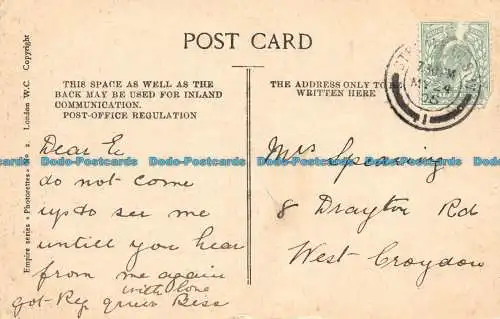 POST CARD
THIS SPACE AS WELL AS THE
BACK MAY BE USED FOR INLAND
COMMUNICATION.
POST-OFFICE REGULATION
THE ADDRESS ONLY TO BE
WRITTEN HERE
Empire series - Photorettes - No 2. London W.C. Copyright
Dear E
do not come
up to see me
untill you hear
from me again
with love
got
Mrs Spearing
8 Drayton Rd
West-Croydon
Dodo-Postcards Dodo-Postcards Dodo-Postcards Dodo-Postcards Dodo-Postcards